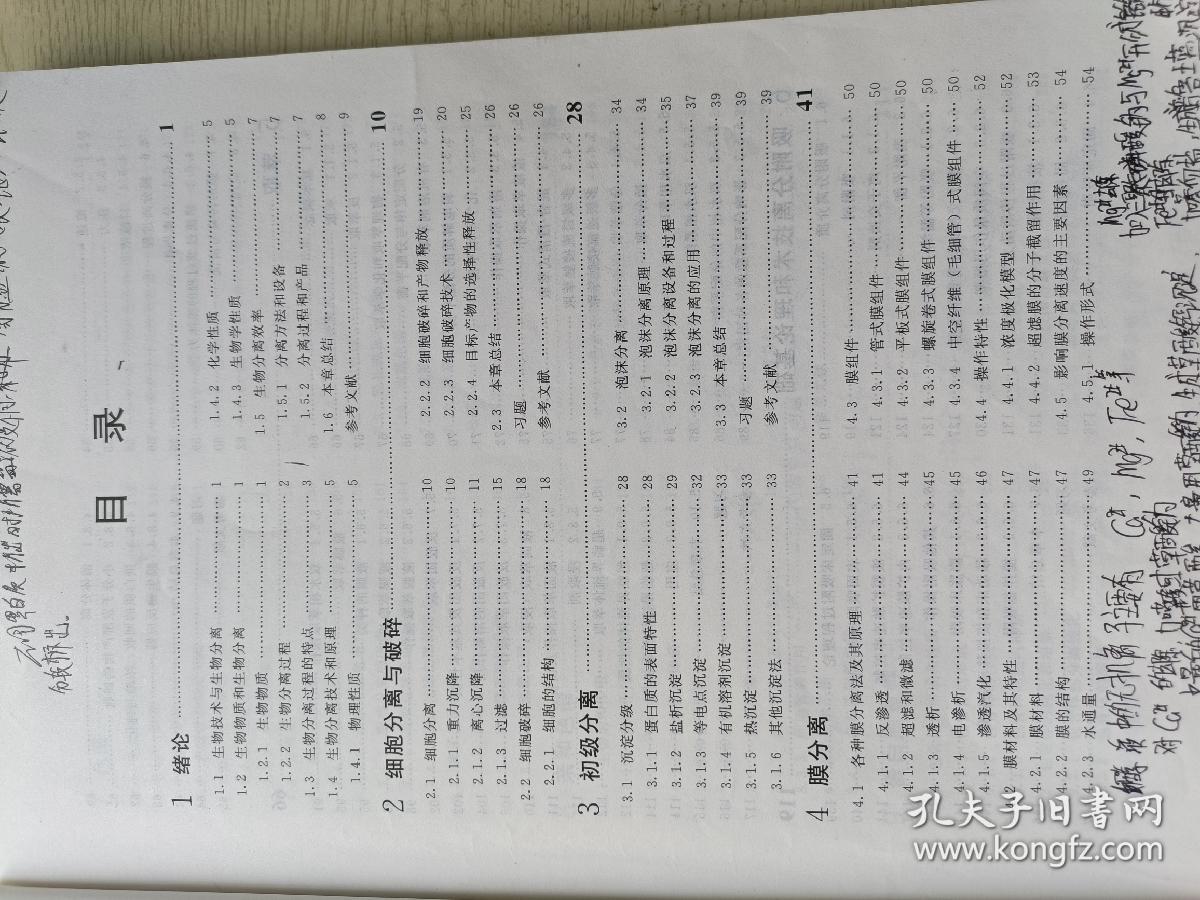 目 录
1 绪论 1
1.1 生物技术与生物分离 1
1.2 生物物质和生物分离 1
1.2.1 生物物质 1
1.2.2 生物分离过程 2
1.3 生物分离过程的特点 3
1.4 生物分离技术和原理 5
1.4.1 物理性质 5
1.4.2 化学性质 5
1.4.3 生物学性质 5
1.5 生物分离效率 7
1.5.1 分离方法和设备 7
1.5.2 分离过程和产品 7
1.6 本章总结 8
参考文献 9
2 细胞分离与破碎 10
2.1 细胞分离 10
2.1.1 重力沉降 10
2.1.2 离心沉降 11
2.1.3 过滤 15
2.2 细胞破碎 18
2.2.1 细胞的结构 18
2.2.2 细胞破碎和产物释放 19
2.2.3 细胞破碎技术 20
2.2.4 目标产物的选择性释放 25
2.3 本章总结 26
习题 26
参考文献 26
3 初级分离 28
3.1 沉淀分级 28
3.1.1 蛋白质的表面特性 28
3.1.2 盐析沉淀 29
3.1.3 等电点沉淀 32
3.1.4 有机溶剂沉淀 33
3.1.5 热沉淀 33
3.1.6 其他沉淀法 33
3.2 泡沫分离 34
3.2.1 泡沫分离原理 34
3.2.2 泡沫分离设备和过程 35
3.2.3 泡沫分离的应用 37
3.3 本章总结 39
习题 39
参考文献 39
4 膜分离 41
4.1 各种膜分离法及其原理 41
4.1.1 反渗透 41
4.1.2 超滤和微滤 44
4.1.3 透析 45
4.1.4 电渗析 45
4.1.5 渗透汽化 46
4.2 膜材料及其特性 47
4.2.1 膜材料 47
4.2.2 膜的结构 47
4.2.3 水通量 49
4.3 膜组件 50
4.3.1 管式膜组件 50
4.3.2 平板式膜组件 50
4.3.3 螺旋卷式膜组件 50
4.3.4 中空纤维（毛细管）式膜组件 50
4.4 操作特性 52
4.4.1 浓度极化模型 52
4.4.2 超滤膜的分子截留作用 53
4.5 影响膜分离速度的主要因素 54
4.5.1 操作形式 54
孔夫子旧书网
www.kongfz.com